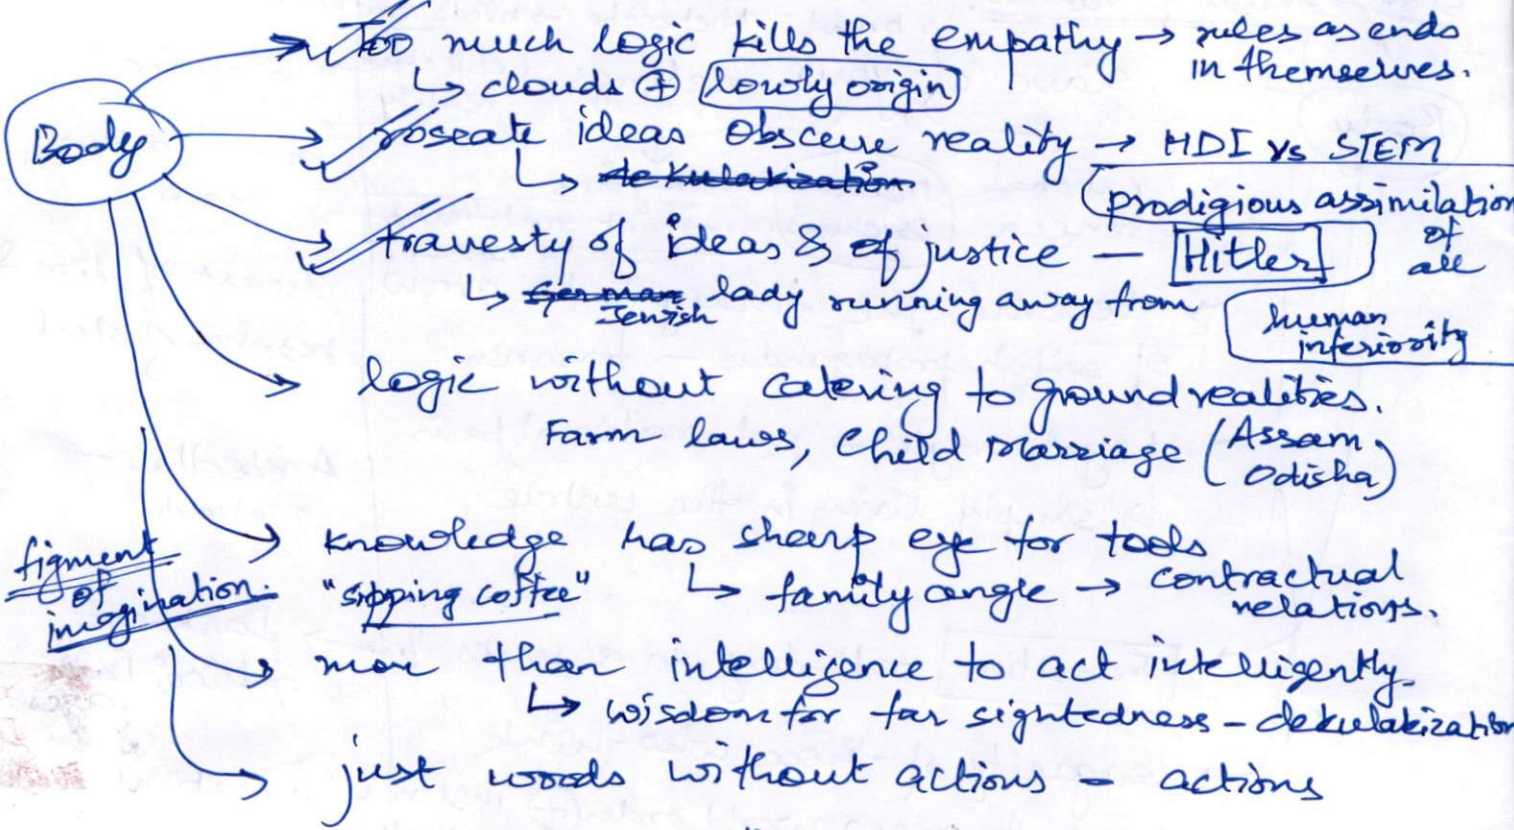 Too much logic kills the empathy → rules as ends
in themselves.
↳ clouds ⊕ lowly origin
Body
roseate ideas obscure reality → HDI vs STEM
↳ dekulakization
prodigious assimilation
of
all
human
inferiority
travesty of ideas & of justice — [Hitler]
↳ German Jewish lady running away from
logic without catering to ground realities.
Farm laws, Child Marriage (Assam,
Odisha)
knowledge has sharp eye for tools
"sipping coffee" ↳ family angle → contractual
relations.
figment
of
imagination.
more than intelligence to act intelligently
↳ wisdom for far sightedness - dekulakization
just words without actions - actions